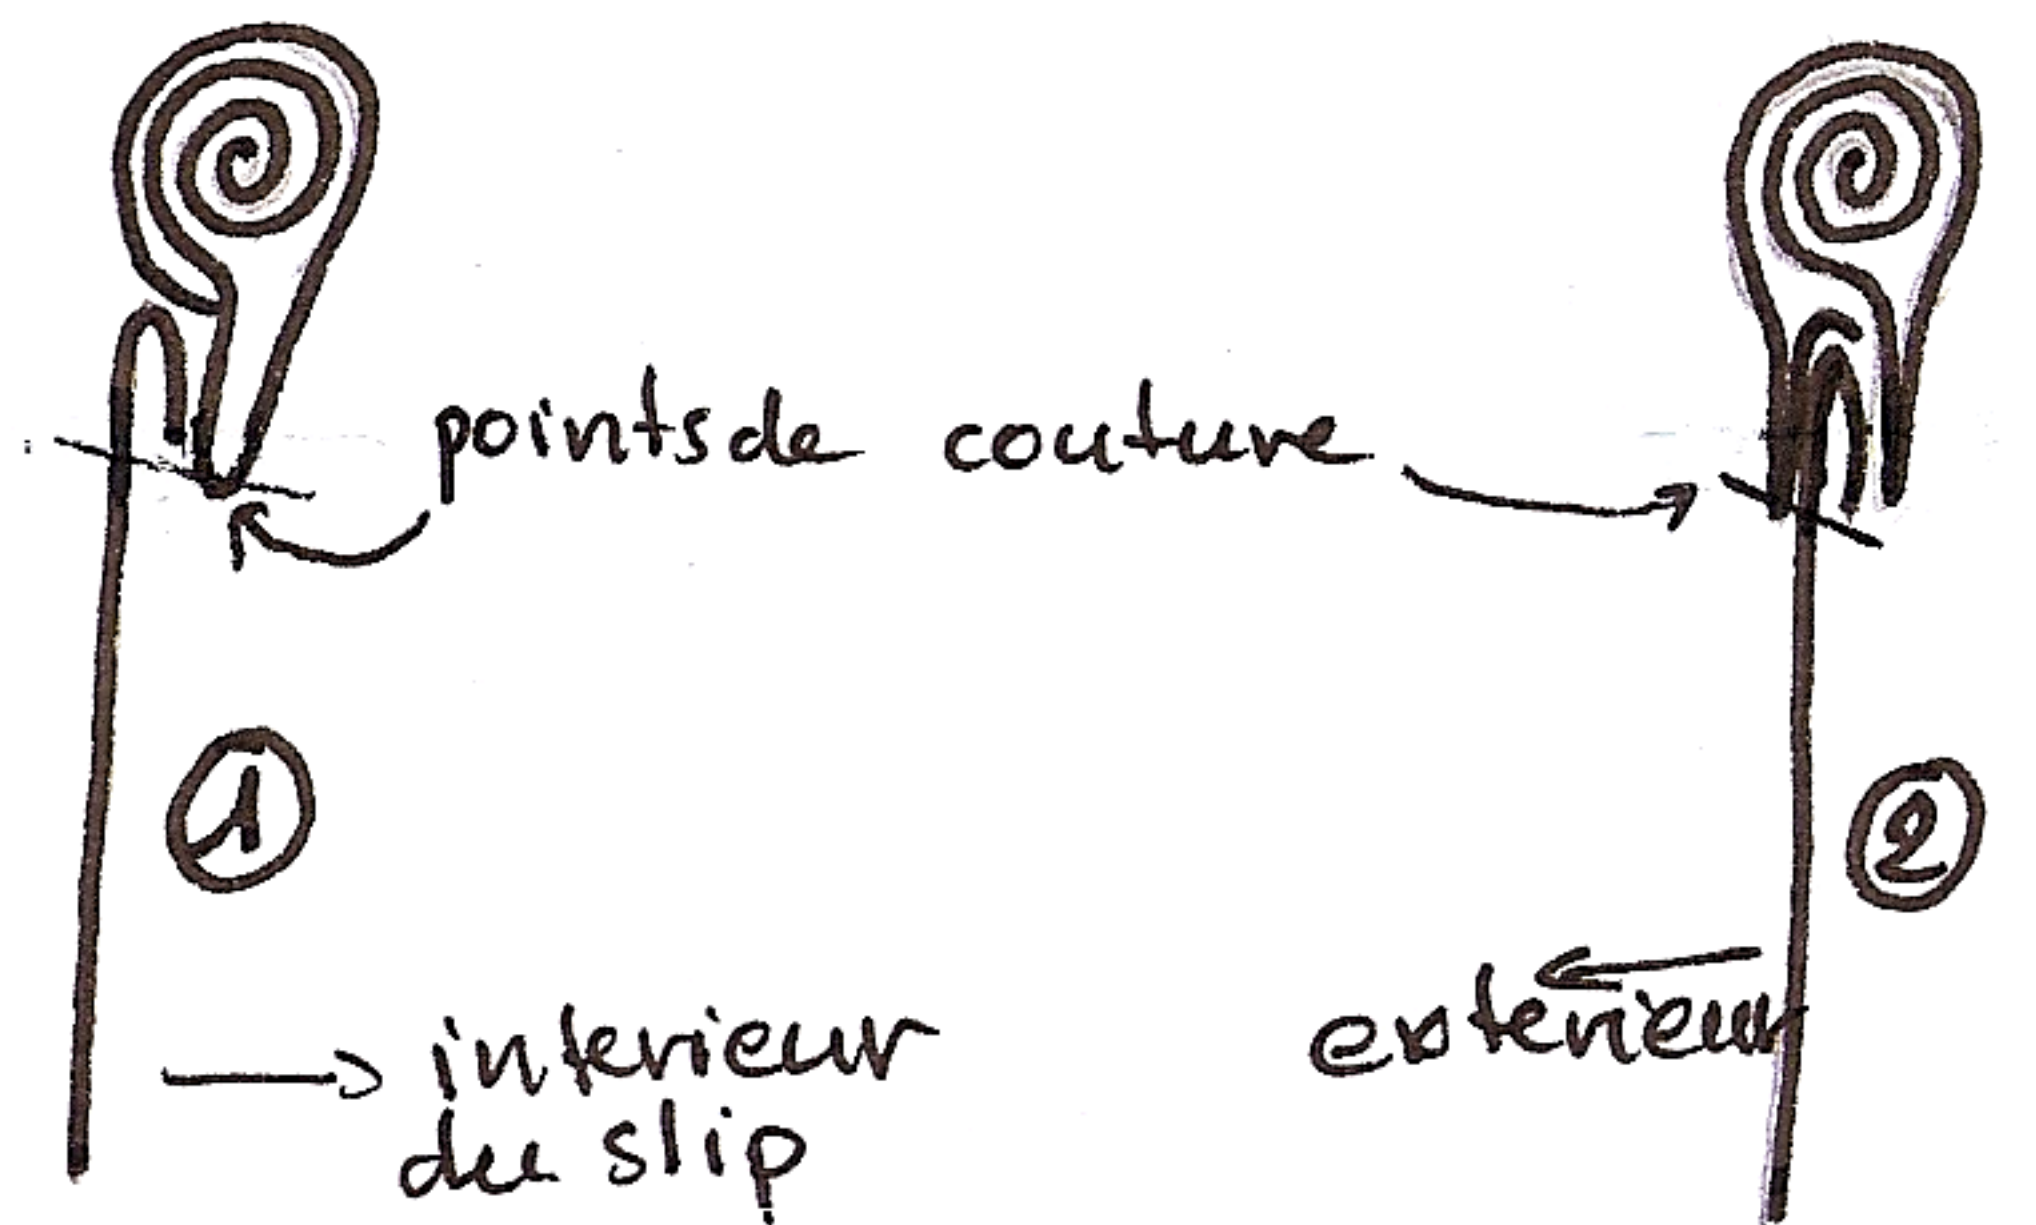 points de couture
1
2
interieur
du slip
exterieur